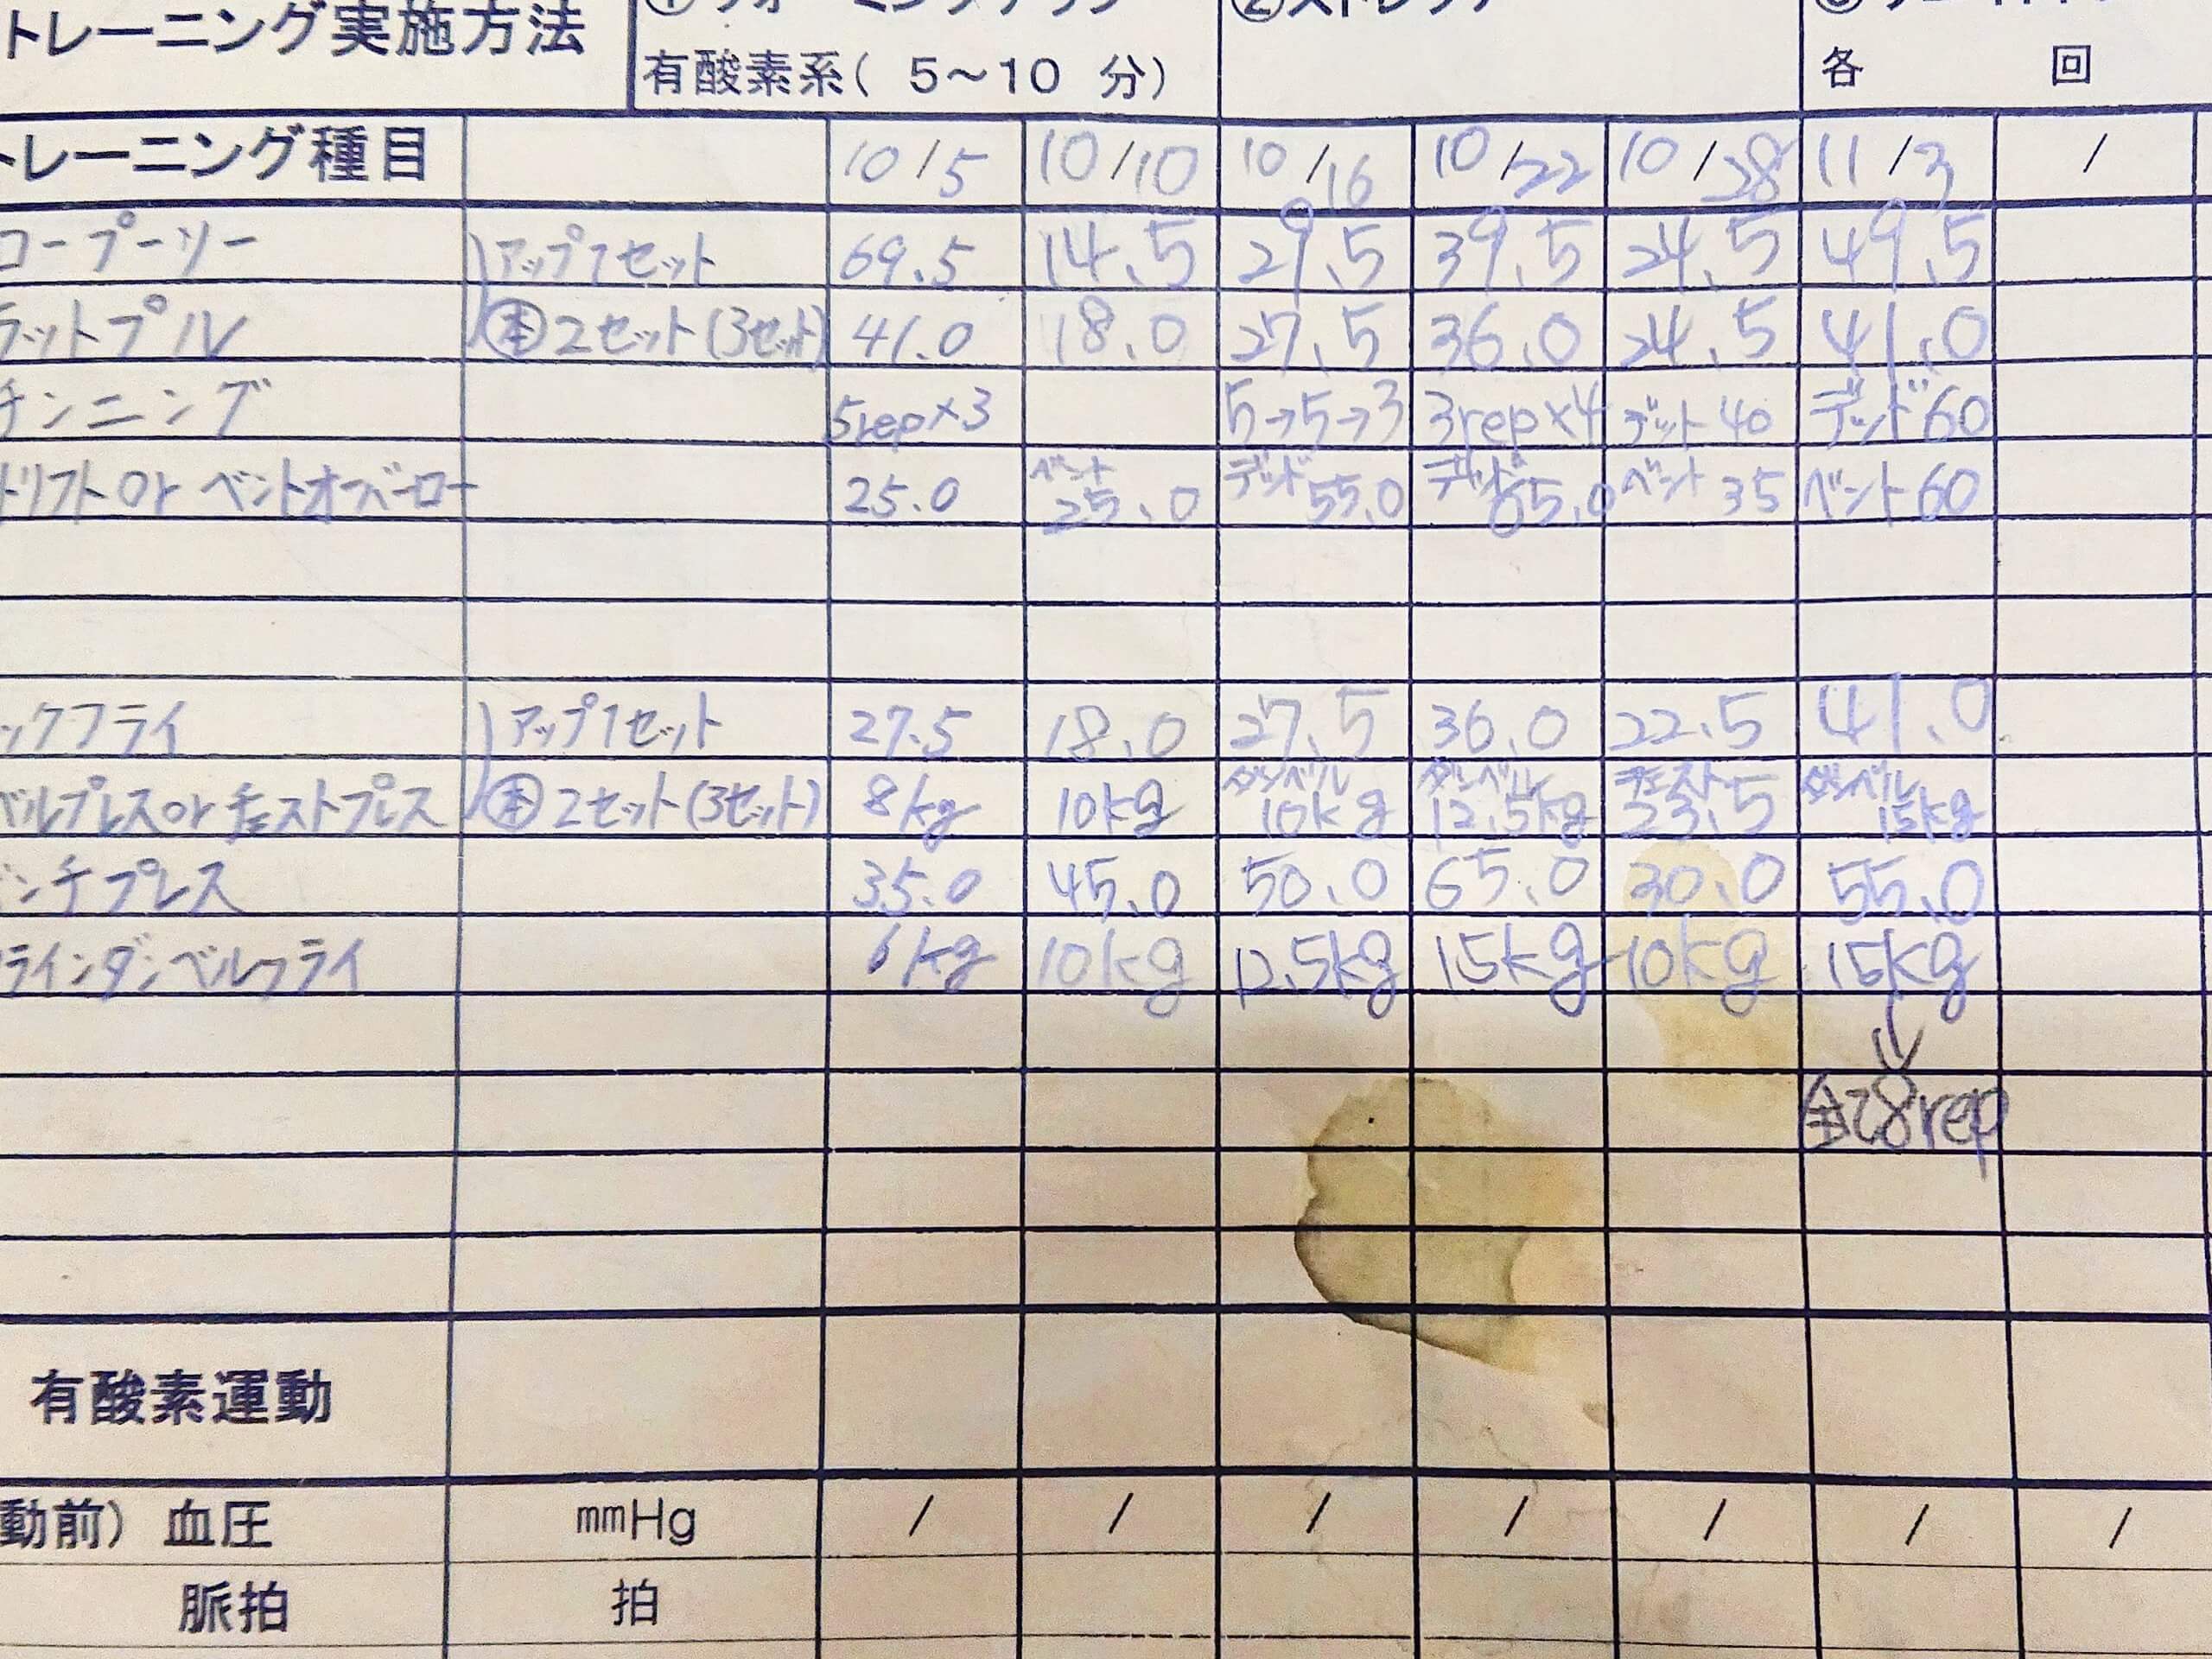 トレーニング実施方法
有酸素系( 5～10 分)
各 回
トレーニング種目 10/5 10/10 10/16 10/22 10/28 11/3 /
ロープーリー アップ1セット 69.5 14.5 29.5 39.5 24.5 49.5
ラットプル 本2セット(3セット) 41.0 18.0 27.5 36.0 24.5 41.0
チンニング 5rep×3 5→5→3 3rep×4 デット40 デッド60
トリフトor ベントオーバーロー 25.0 ベント25.0 デッド55.0 デッド65.0 ベント35 ベント60
ックフライ アップ1セット 27.5 18.0 27.5 36.0 22.5 41.0
ベルプレスor チェストプレス 本2セット(3セット) 8kg 10kg ダンベル10kg ダンベル12.5kg チェスト23.5 ダンベル15kg
ンチプレス 35.0 45.0 50.0 65.0 30.0 55.0
ラインダンベルフライ 6kg 10kg 12.5kg 15kg 10kg 15kg
全て8rep
有酸素運動
動前) 血圧 mmHg / / / / / / /
脈拍 拍